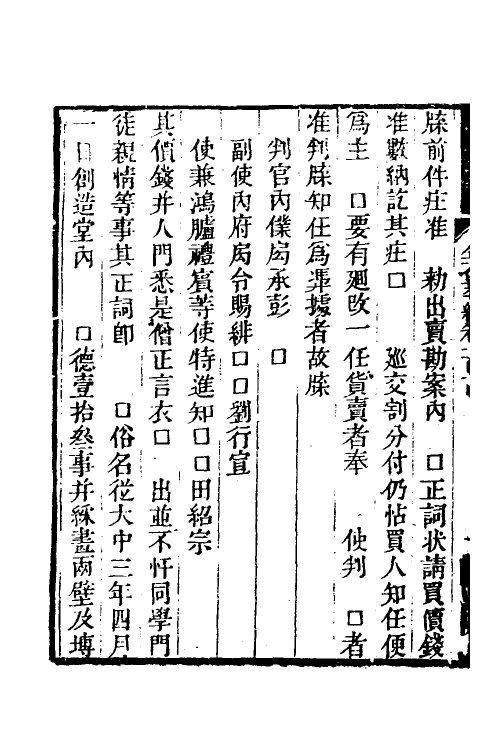 牒前件庄准　勑出賣勘案內　□正詞状請買價錢
准數納訖其庄□　廵交割分付仍帖買人知任便
爲主　□要有廻改一任貨賣者奉　使判　□者
准判牒知任爲凴據者故牒
判官內僕局丞彭　□
副使內府局令賜緋□□劉行宣
使兼鴻臚禮賓等使特進知□□田紹宗
其價錢并人門悉是僧正言衣□　出並不忓同學門
徒親情等事其正詞卽　□俗名從大中三年四月
一日創造堂內　□德壹拾叁事并綵畫兩壁及塼